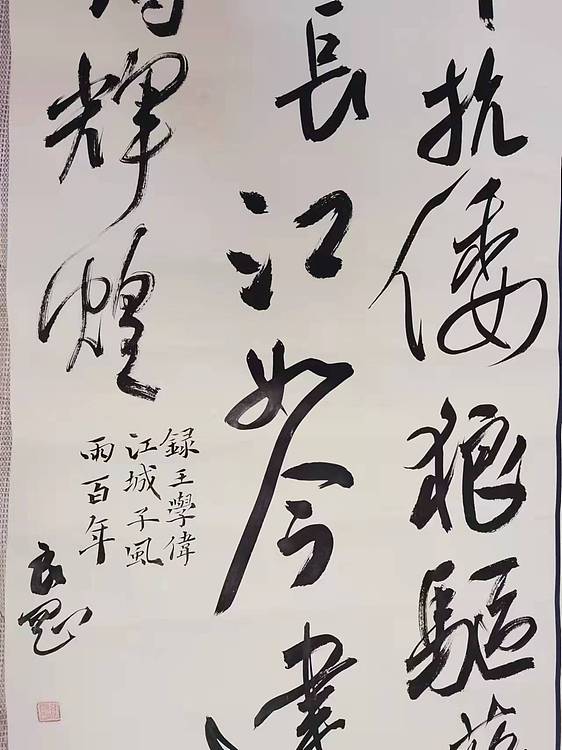 抗倭狼驅
長江如今
輝煌
録王學偉
江城子風
雨百年